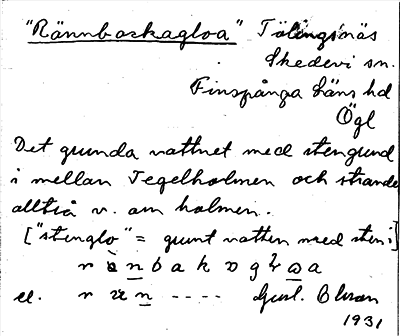 "Rännbackagloa" Tölingsnäs
Skedevi sn.
Finspånga läns hd
Ögl
Det grunda vattnet med stengrund
i mellan Tegelholmen och strande
alltså v. om holmen.
["stenglo" = grunt vatten med sten]
el. - - - -
1931